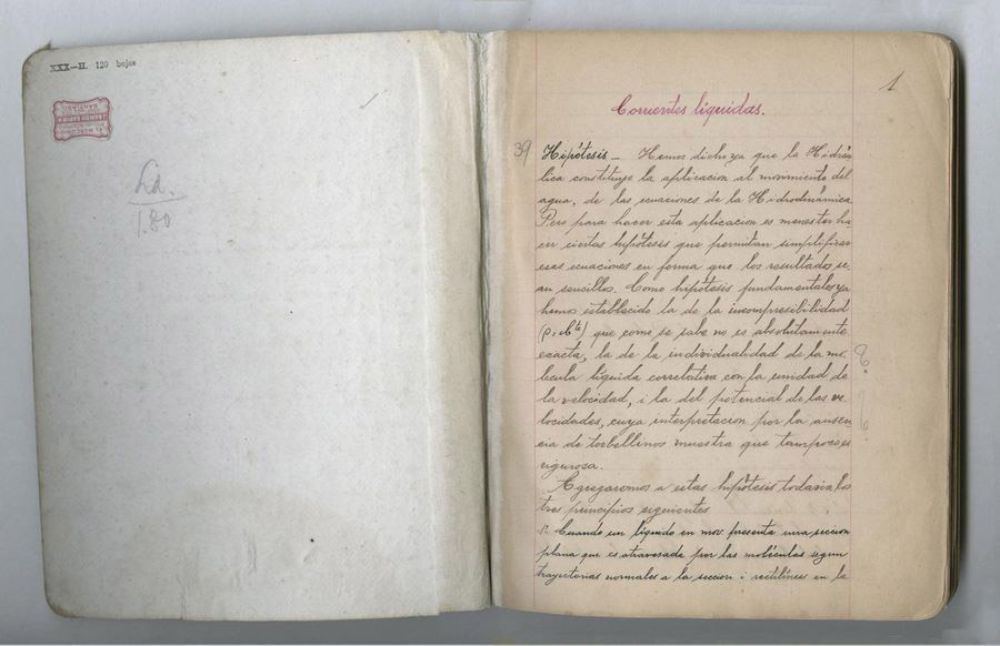 XXX—II. 120 hojas
La.
1.80
1
Corrientes líquidas.
39 Hipótesis _ Hemos dicho ya que la Hidráu
lica constituye la aplicacion al movimiento del
agua, de las ecuaciones de la Hidrodinámica.
Pero para hacer esta aplicacion es menester ha
cer ciertas hipótesis que permitan simplificar
esas ecuaciones en forma que los resultados se
an sencillos. Como hipótesis fundamentales ya
hemos establecido la de la incompresibilidad
que como se sabe no es absolutamente
exacta, la de la individualidad de la mo
lecula líquida correlativa con la unidad de
la velocidad, i la del potencial de las ve
locidades, cuya interpretacion por la ausen
cia de torbellinos muestra que tampoco es
rigurosa.
Agregaremos a estas hipótesis todavia los
tres principios siguientes
Cuando un líquido en mov. presenta una seccion
plana que es atravesada por las moléculas segun
trayectorias normales a la seccion i rectilíneas en la
?
?